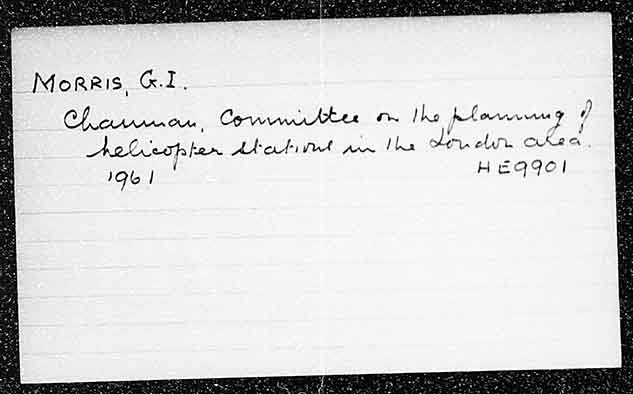 MORRIS, G.I.
Chairman, Committee on the planning of
helicopter stations in the London area.
1961 HE9901